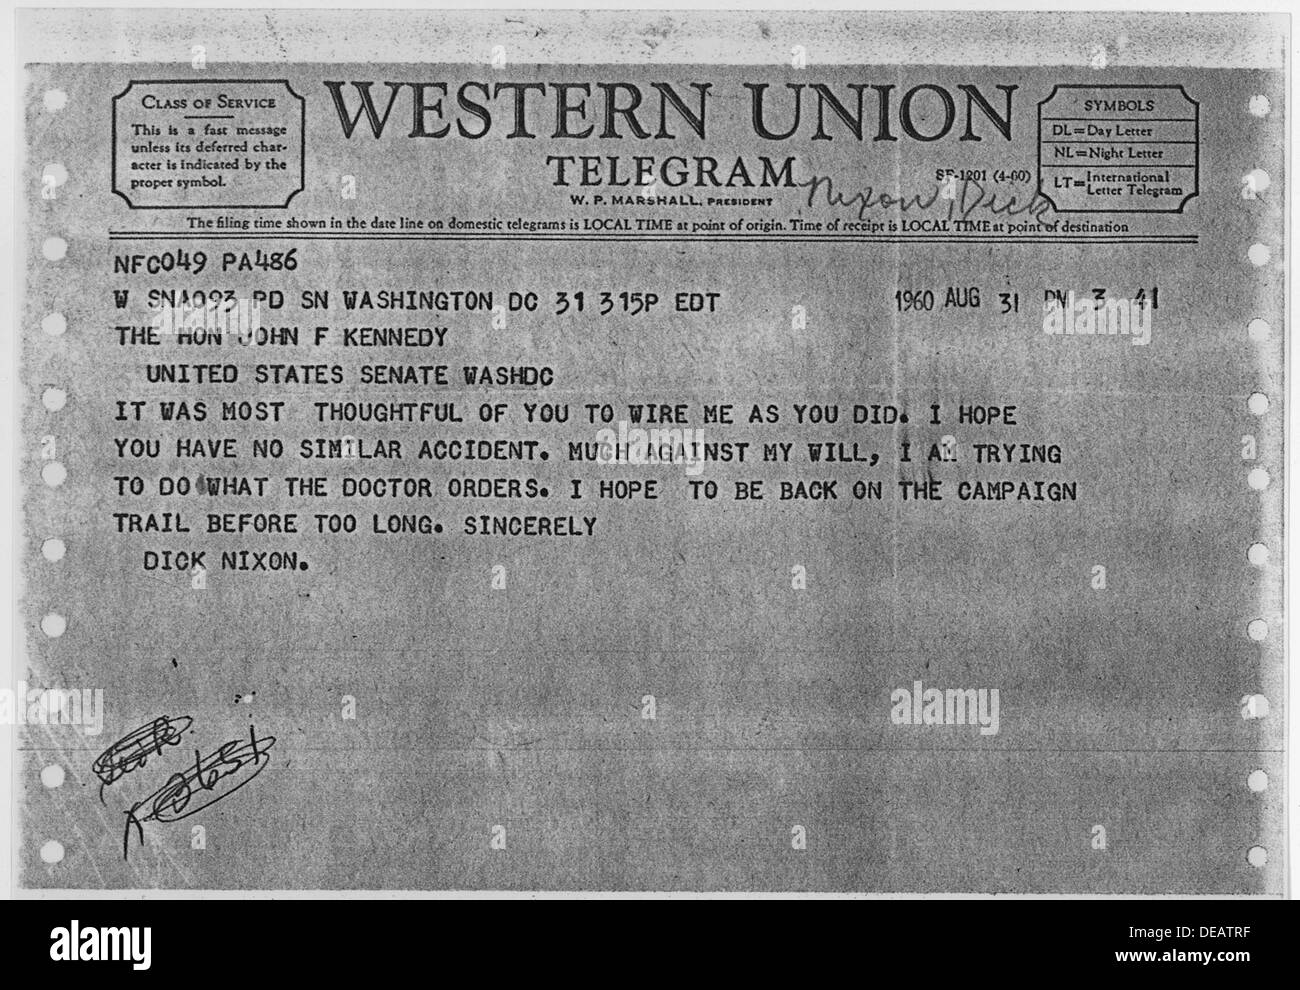 CLASS OF SERVICE
This is a fast message
unless its deferred char-
acter is indicated by the
proper symbol.
WESTERN UNION
TELEGRAM
W. P. MARSHALL, PRESIDENT
SF-1201 (4-60)
Nixon, Dick
SYMBOLS
DL=Day Letter
NL=Night Letter
LT=International
Letter Telegram
The filing time shown in the date line on domestic telegrams is LOCAL TIME at point of origin. Time of receipt is LOCAL TIME at point of destination
NFC049 PA486
W SNA093 PD SN WASHINGTON DC 31 315P EDT
1960 AUG 31 PM 3 41
THE HON JOHN F KENNEDY
UNITED STATES SENATE WASHDC
IT WAS MOST THOUGHTFUL OF YOU TO WIRE ME AS YOU DID. I HOPE
YOU HAVE NO SIMILAR ACCIDENT. MUCH AGAINST MY WILL, I AM TRYING
TO DO WHAT THE DOCTOR ORDERS. I HOPE TO BE BACK ON THE CAMPAIGN
TRAIL BEFORE TOO LONG. SINCERELY
DICK NIXON.
alamy
alamy
Image ID: DEATRF
www.alamy.com